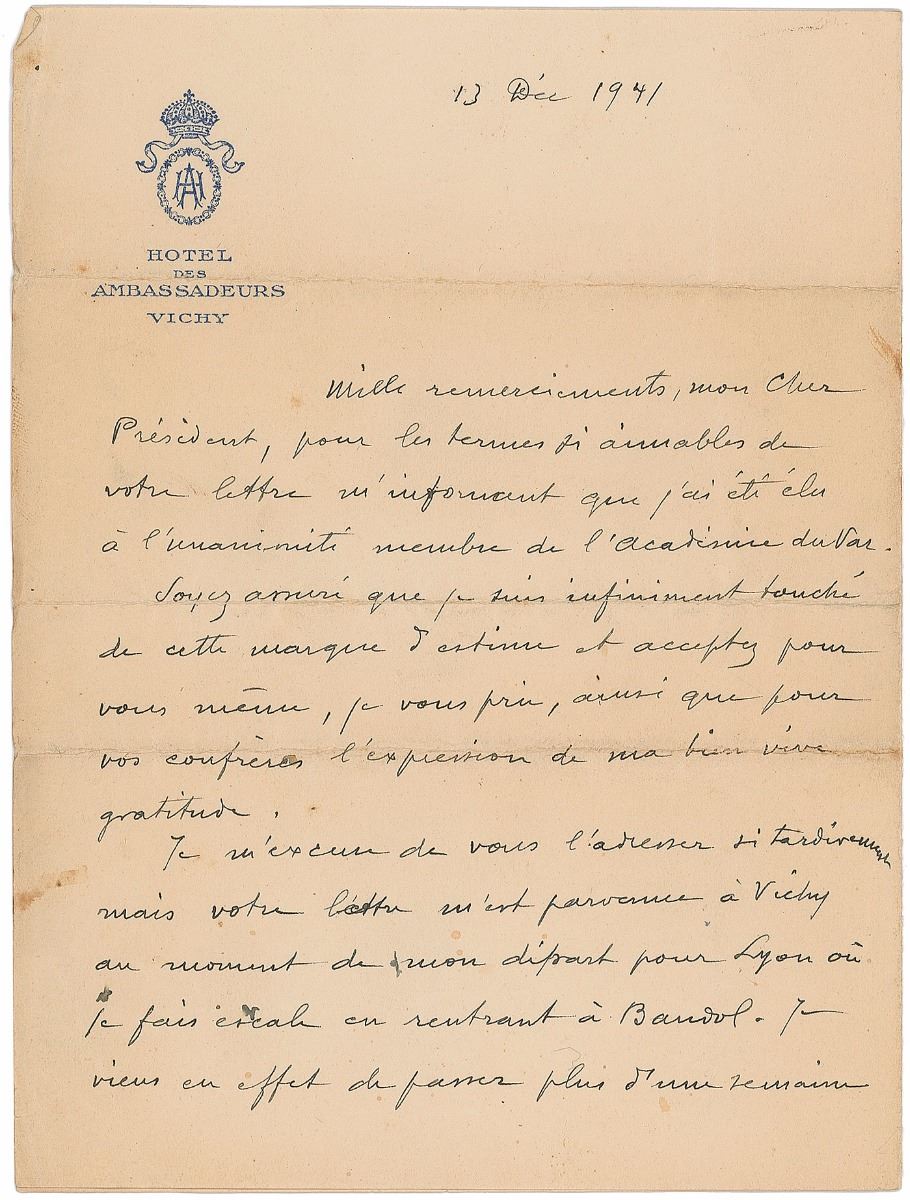 13 Déc 1941
AH
HOTEL
DES
AMBASSADEURS
VICHY
Mille remerciements, mon Cher
Président, pour les termes si aimables de
votre lettre m'informant que j'ai été élu
à l'unanimité membre de l'Académie du Var.
Soyez assuré que je suis infiniment touché
de cette marque d'estime et acceptez pour
vous même, je vous prie, ainsi que pour
vos confrères l'expression de ma bien vive
gratitude.
Je m'excuse de vous l'adresser si tardivement
mais votre lettre m'est parvenue à Vichy
au moment de mon départ pour Lyon où
je fais escale en rentrant à Bandol. Je
viens en effet de passer plus d'une semaine